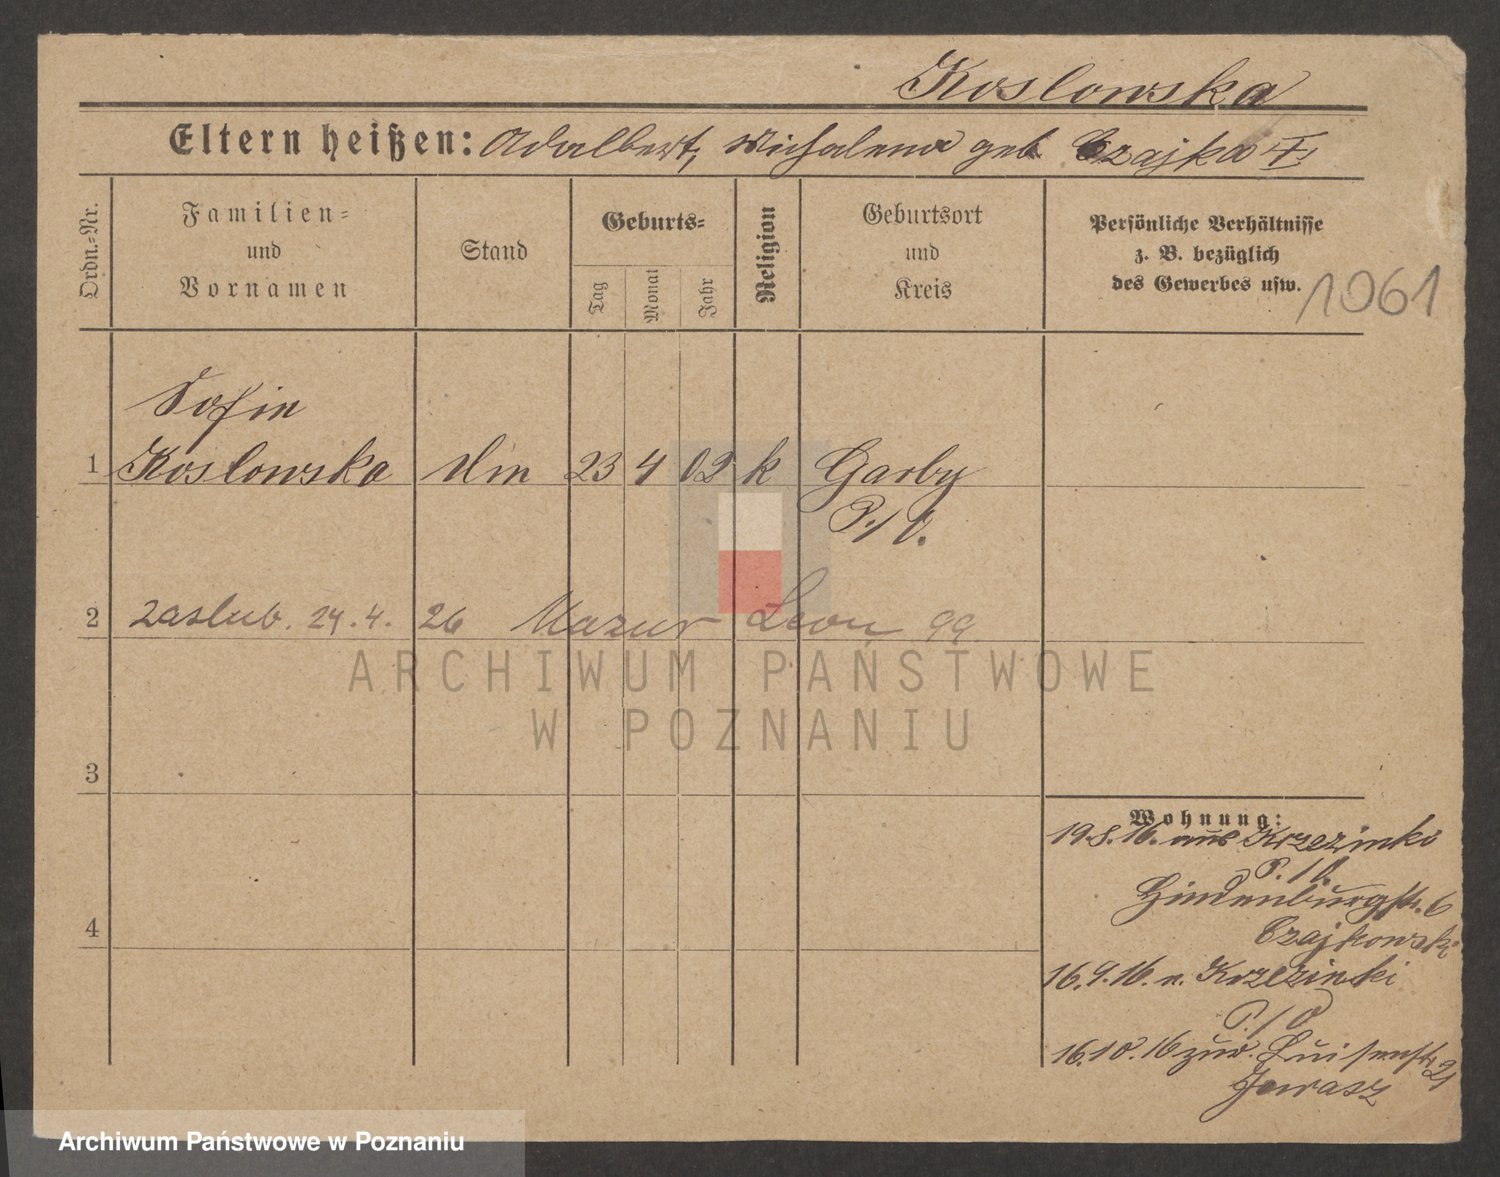 Koslowska
Eltern heißen: Adalbert, Michalena geb. Czajka
Ordn.=Nr.
Familien=
und
Vornamen
Stand
Geburts=
Tag
Monat
Jahr
Religion
Geburtsort
und
Kreis
Persönliche Verhältnisse
z. B. bezüglich
des Gewerbes usw.
1061
Sofie
1 Koslowska din 23 4 02 k Garby
P./O.
2 zaslub. 24.4.26 Mazur Leon 99
3
4
Wohnung:
19.8.16. aus Krzezinki
P./O.
Hindenburgstr. 6
Czajkowski
16.9.16. n. Krzezinki
P./O
16.10.16 zur. Luisenstr 21
Jarasz
ARCHIWUM PAŃSTWOWE
W POZNANIU
Archiwum Państwowe w Poznaniu